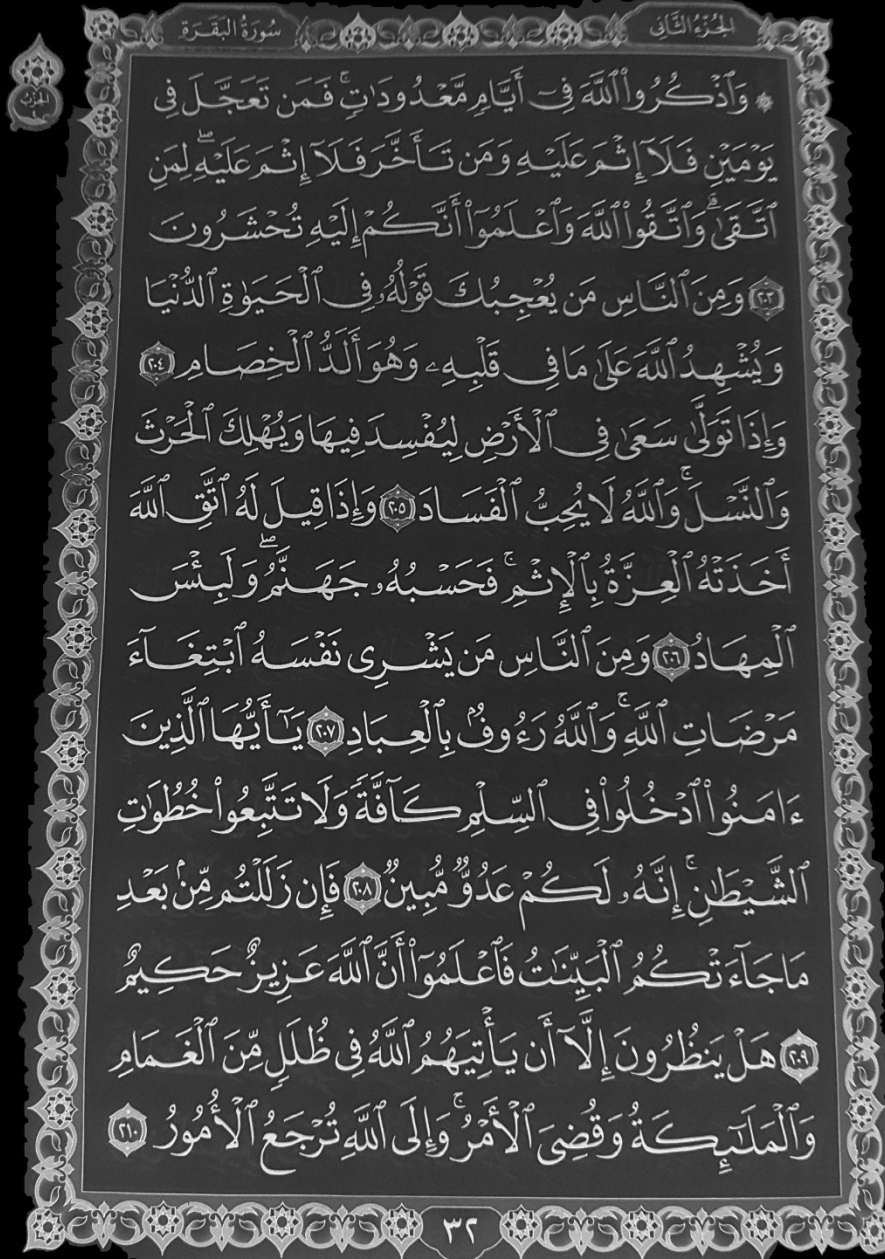 الجُزْءُ الثَّانِي
سُورَةُ البَقَرَةِ
الحِزْب
٤
۞ وَٱذْكُرُوا۟ ٱللَّهَ فِىٓ أَيَّامٍ مَّعْدُودَٰتٍ ۚ فَمَن تَعَجَّلَ فِى
يَوْمَيْنِ فَلَآ إِثْمَ عَلَيْهِ وَمَن تَأَخَّرَ فَلَآ إِثْمَ عَلَيْهِ ۖ لِمَنِ
ٱتَّقَىٰ ۗ وَٱتَّقُوا۟ ٱللَّهَ وَٱعْلَمُوٓا۟ أَنَّكُمْ إِلَيْهِ تُحْشَرُونَ
٢٠٣ وَمِنَ ٱلنَّاسِ مَن يُعْجِبُكَ قَوْلُهُۥ فِى ٱلْحَيَوٰةِ ٱلدُّنْيَا
وَيُشْهِدُ ٱللَّهَ عَلَىٰ مَا فِى قَلْبِهِۦ وَهُوَ أَلَدُّ ٱلْخِصَامِ ٢٠٤
وَإِذَا تَوَلَّىٰ سَعَىٰ فِى ٱلْأَرْضِ لِيُفْسِدَ فِيهَا وَيُهْلِكَ ٱلْحَرْثَ
وَٱلنَّسْلَ ۚ وَٱللَّهُ لَا يُحِبُّ ٱلْفَسَادَ ٢٠٥ وَإِذَا قِيلَ لَهُ ٱتَّقِ ٱللَّهَ
أَخَذَتْهُ ٱلْعِزَّةُ بِٱلْإِثْمِ ۚ فَحَسْبُهُۥ جَهَنَّمُ ۖ وَلَبِئْسَ
ٱلْمِهَادُ ٢٠٦ وَمِنَ ٱلنَّاسِ مَن يَشْرِى نَفْسَهُ ٱبْتِغَآءَ
مَرْضَاتِ ٱللَّهِ ۚ وَٱللَّهُ رَءُوفٌۢ بِٱلْعِبَادِ ٢٠٧ يَٰٓأَيُّهَا ٱلَّذِينَ
ءَامَنُوا۟ ٱدْخُلُوا۟ فِى ٱلسِّلْمِ كَآفَّةً وَلَا تَتَّبِعُوا۟ خُطُوَٰتِ
ٱلشَّيْطَٰنِ ۚ إِنَّهُۥ لَكُمْ عَدُوٌّ مُّبِينٌ ٢٠٨ فَإِن زَلَلْتُم مِّنۢ بَعْدِ
مَا جَآءَتْكُمُ ٱلْبَيِّنَٰتُ فَٱعْلَمُوٓا۟ أَنَّ ٱللَّهَ عَزِيزٌ حَكِيمٌ
٢٠٩ هَلْ يَنظُرُونَ إِلَّآ أَن يَأْتِيَهُمُ ٱللَّهُ فِى ظُلَلٍ مِّنَ ٱلْغَمَامِ
وَٱلْمَلَٰٓئِكَةُ وَقُضِىَ ٱلْأَمْرُ ۚ وَإِلَى ٱللَّهِ تُرْجَعُ ٱلْأُمُورُ ٢١٠
٣٢